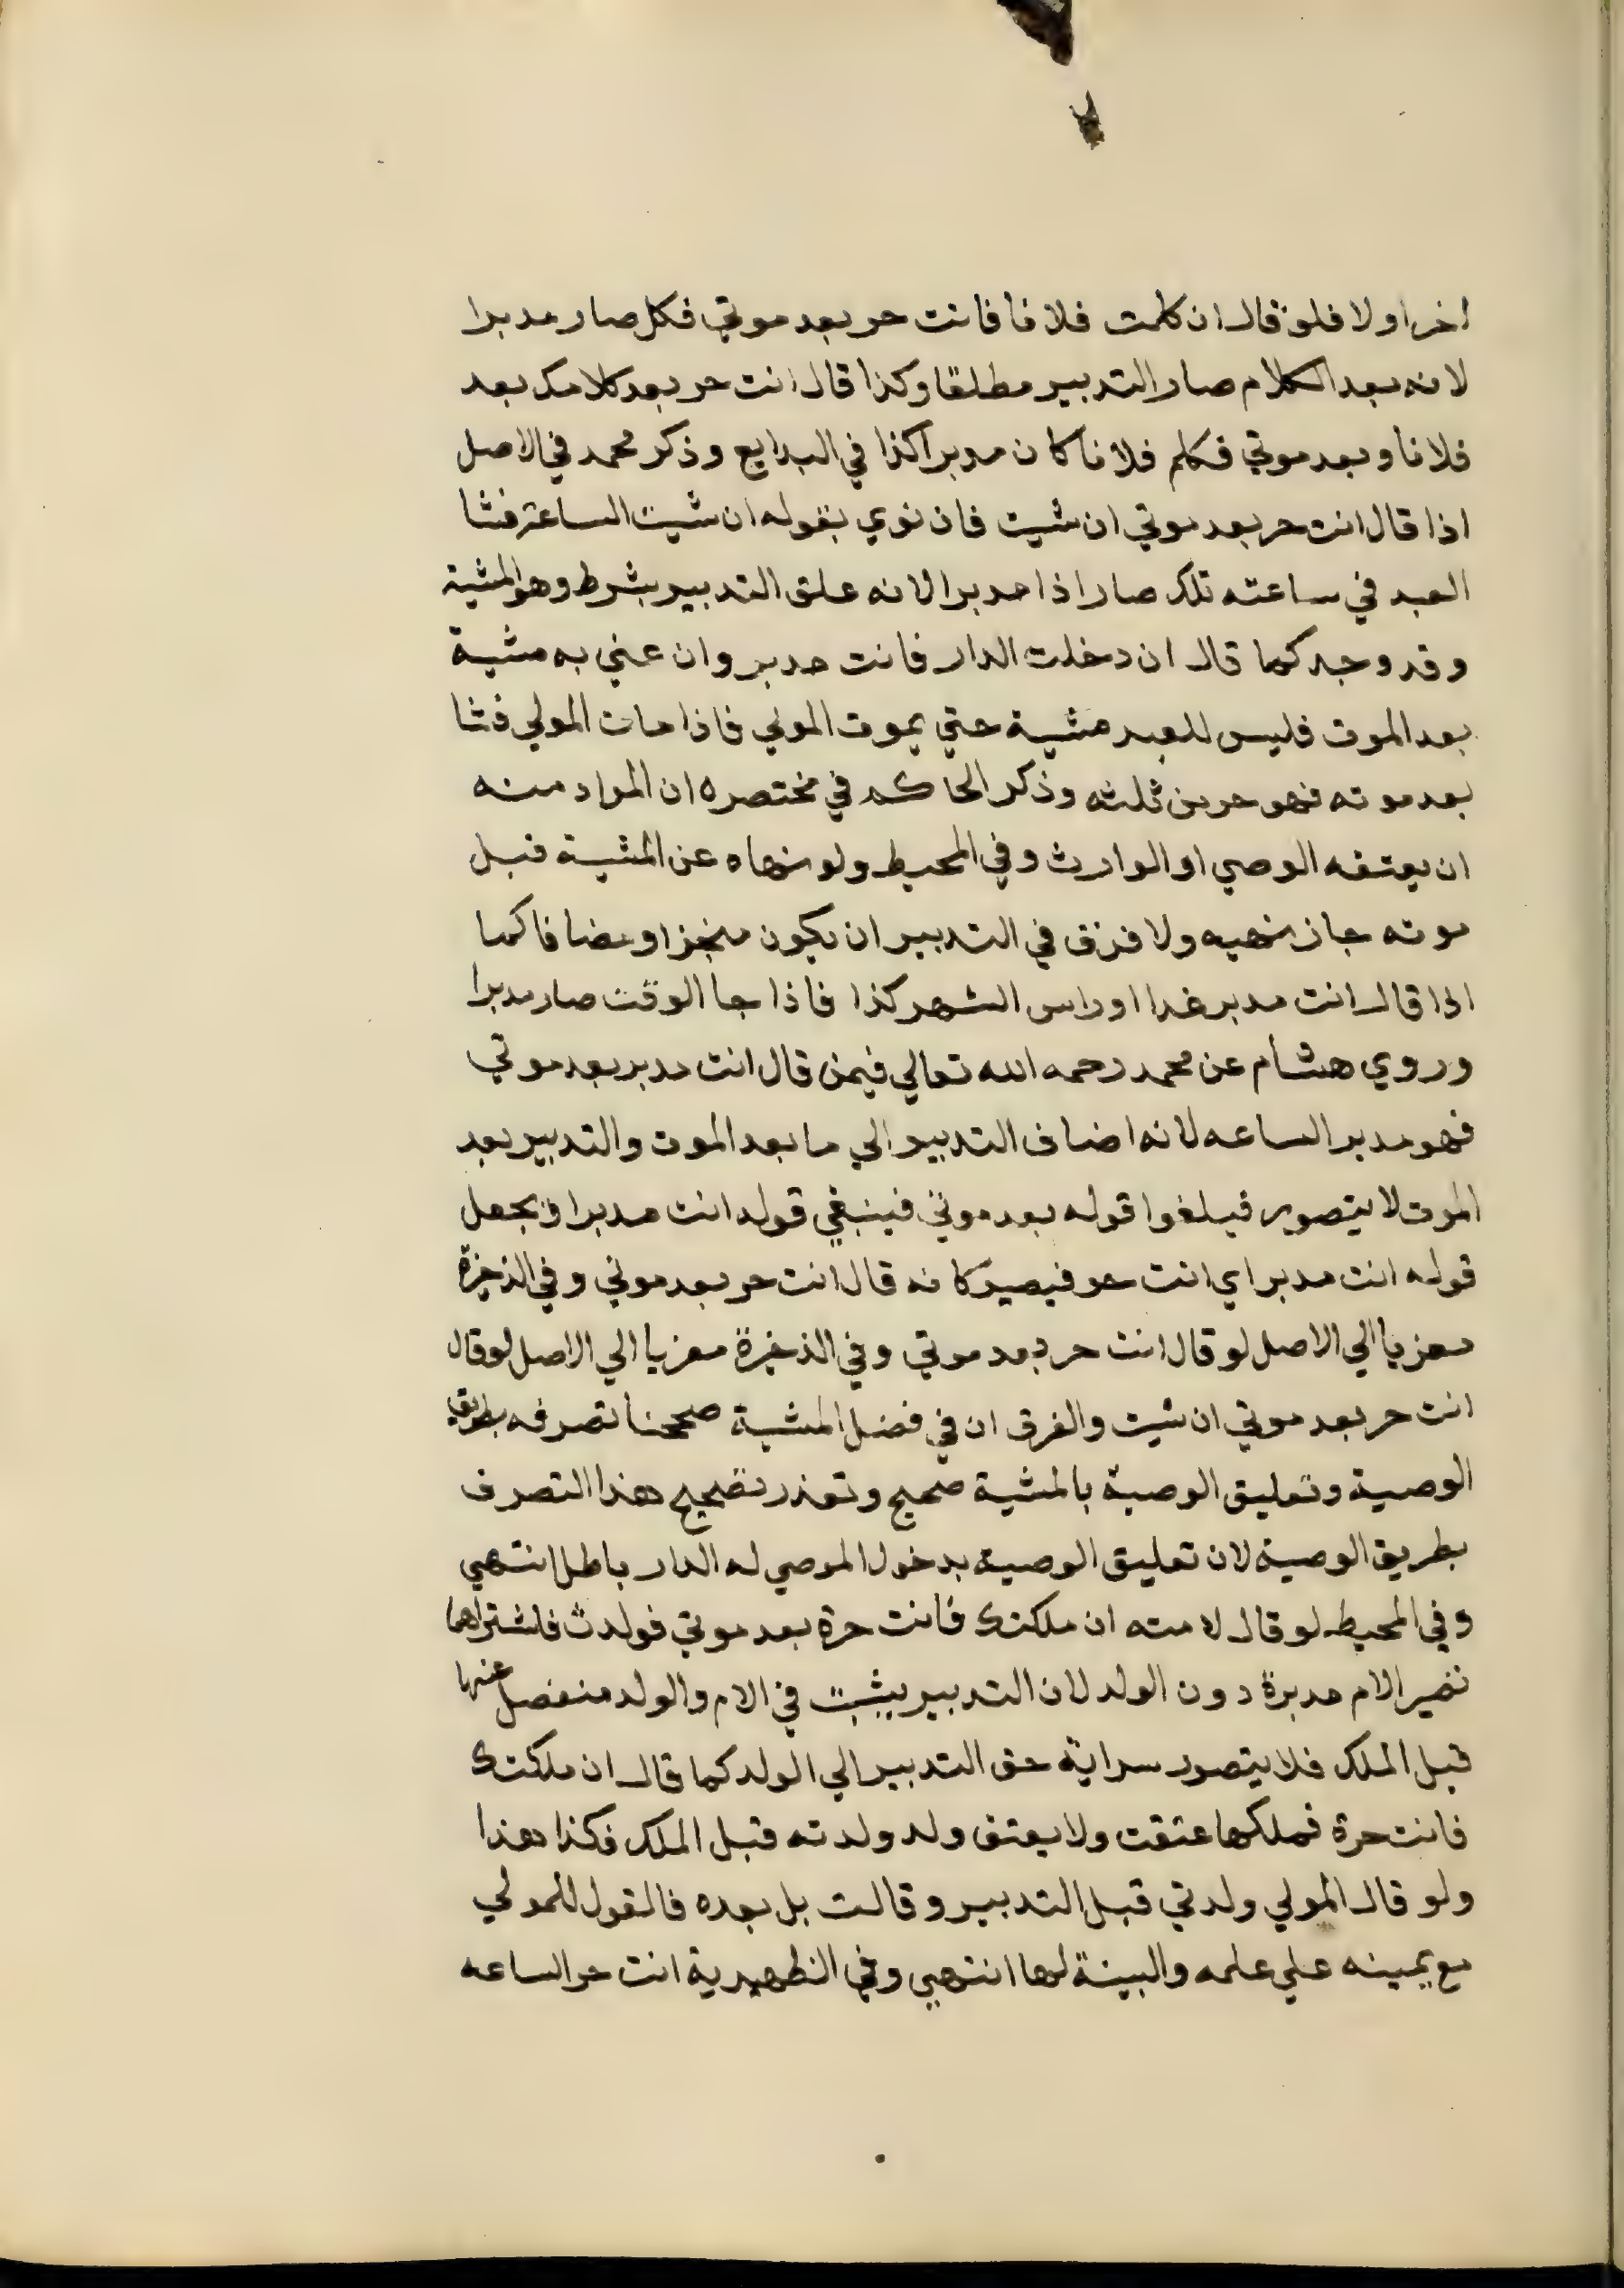 اخر اولا فلو قال ان كلمت فلانا فانت حر بعد موتي فكل صار مدبرا
لانه بعد الكلام صار التدبير مطلقا وكذا قال انت حر بعد كلامك بعد
فلانا وبعد موتي فكلم فلانا كان مدبرا كذا في البدايع وذكر محمد في الاصل
اذا قال انت حر بعد موتي ان شيت فان نوي بقوله ان شيت الساعة فشا
العبد في ساعته تلك صار اذا مدبرا لانه علق التدبير بشرط وهو المشية
وقد وجد كما قال ان دخلت الدار فانت مدبر وان عني به مشية
بعد الموت فليس للعبد مشية حتي يموت المولي فاذا مات المولي فشا
بعد موته فهو حر من ثلثه وذكر الحاكم في مختصره ان المراد منه
ان يعتقه الوصي او الوارث وفي المحيط ولو نهاه عن المشية قبل
موته جاز نهيه ولا فرق في التدبير ان يكون منجزا او مضافا كما
اذا قال انت مدبر غدا او راس الشهر كذا فاذا جا الوقت صار مدبرا
وروي هشام عن محمد رحمه الله تعالي فيمن قال انت مدبر بعد موتي
فهو مدبر الساعه لانه اضاف التدبير الي ما بعد الموت والتدبير بعد
الموت لا يتصور فيلغوا قوله بعد موتي فينبغي قوله انت مدبرا ويجعل
قوله انت مدبر اي انت حر فيصير كانه قال انت حر بعد موتي وفي الذخيرة
معزيا الي الاصل لو قال انت حر بعد موتي وفي الذخيرة معزيا الي الاصل لو قال
انت حر بعد موتي ان شيت والفرق ان في فضل المشية صححنا تصرفه بطريق
الوصية وتعليق الوصية بالمشية صحيح وتعذر تصحيح هذا التصرف
بطريق الوصية لان تعليق الوصية بدخول الموصي له الدار باطل انتهي
وفي المحيط لو قال لامته ان ملكتك فانت حرة بعد موتي فولدت فاشتراهما
تصير الام مدبرة دون الولد لان التدبير يثبت في الام والولد منفصل عنها
قبل الملك فلا يتصور سراية حق التدبير الي الولد كما قال ان ملكتك
فانت حرة فملكها عتقت ولا يعتق ولد ولدته قبل الملك فكذا هذا
ولو قال المولي ولدتي قبل التدبير وقالت بل بعده فالقول للمولي
مع يمينه علي علمه والبينة لها انتهي وفي الظهيرية انت حر الساعه